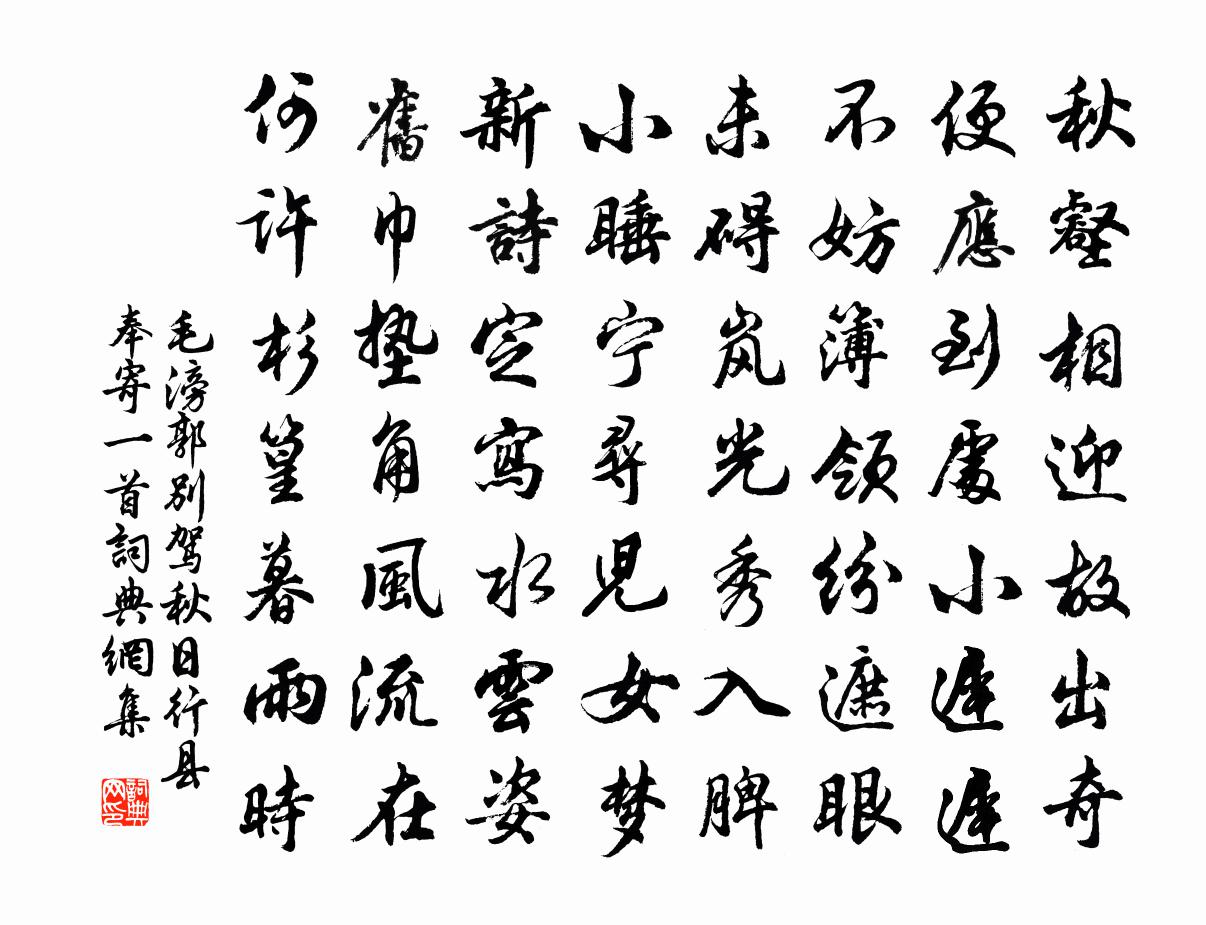 秋壑相迎故出奇
便應到處小遲遲
不妨簿領紛遮眼
未碍岚光秀入脾
小睡宁尋児女梦
新詩定寫水雲姿
舊巾墊角風流在
何許杉篁暮雨時
毛滂郭别駕秋日行县
奉寄一首詞典網集
詞典
网印